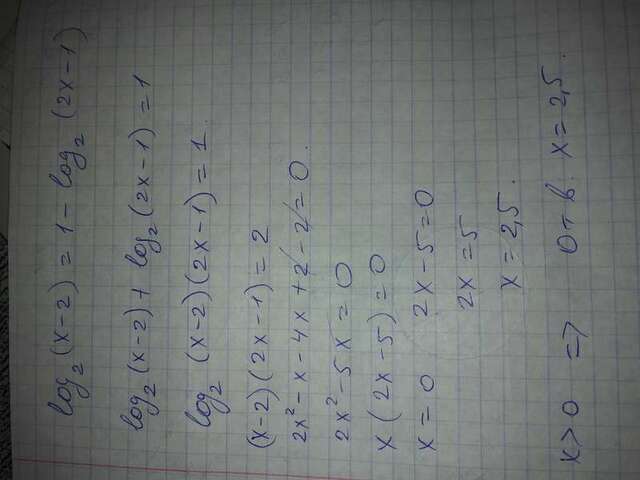 log₂(x-2) = 1 - log₂(2x-1)
log₂(x-2) + log₂(2x-1) = 1
log₂(x-2)(2x-1) = 1.
(x-2)(2x-1) = 2
2x² - x - 4x + 2 - 2 = 0.
2x² - 5x = 0
x(2x-5) = 0
x = 0 2x-5=0
2x = 5
x = 2,5.
x > 0 => Отв. x = 2,5.